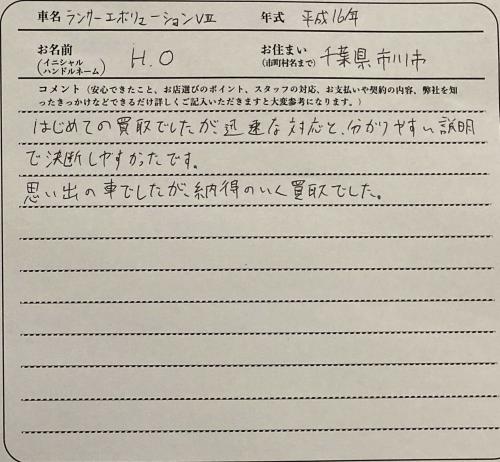 車名 ランサーエボリューションVIII 年式 平成16年
お名前 (イニシャル ハンドルネーム) H.O お住まい (市町村名まで) 千葉県市川市
コメント（安心できたこと、お店選びのポイント、スタッフの対応、お支払いや契約の内容、弊社を知
ったきっかけなどできるだけ詳しくご記入いただきますと大変参考になります。）
はじめての買取でしたが迅速な対応と、分かりやすい説明
で決断しやすかったです。
思い出の車でしたが、納得のいく買取でした。